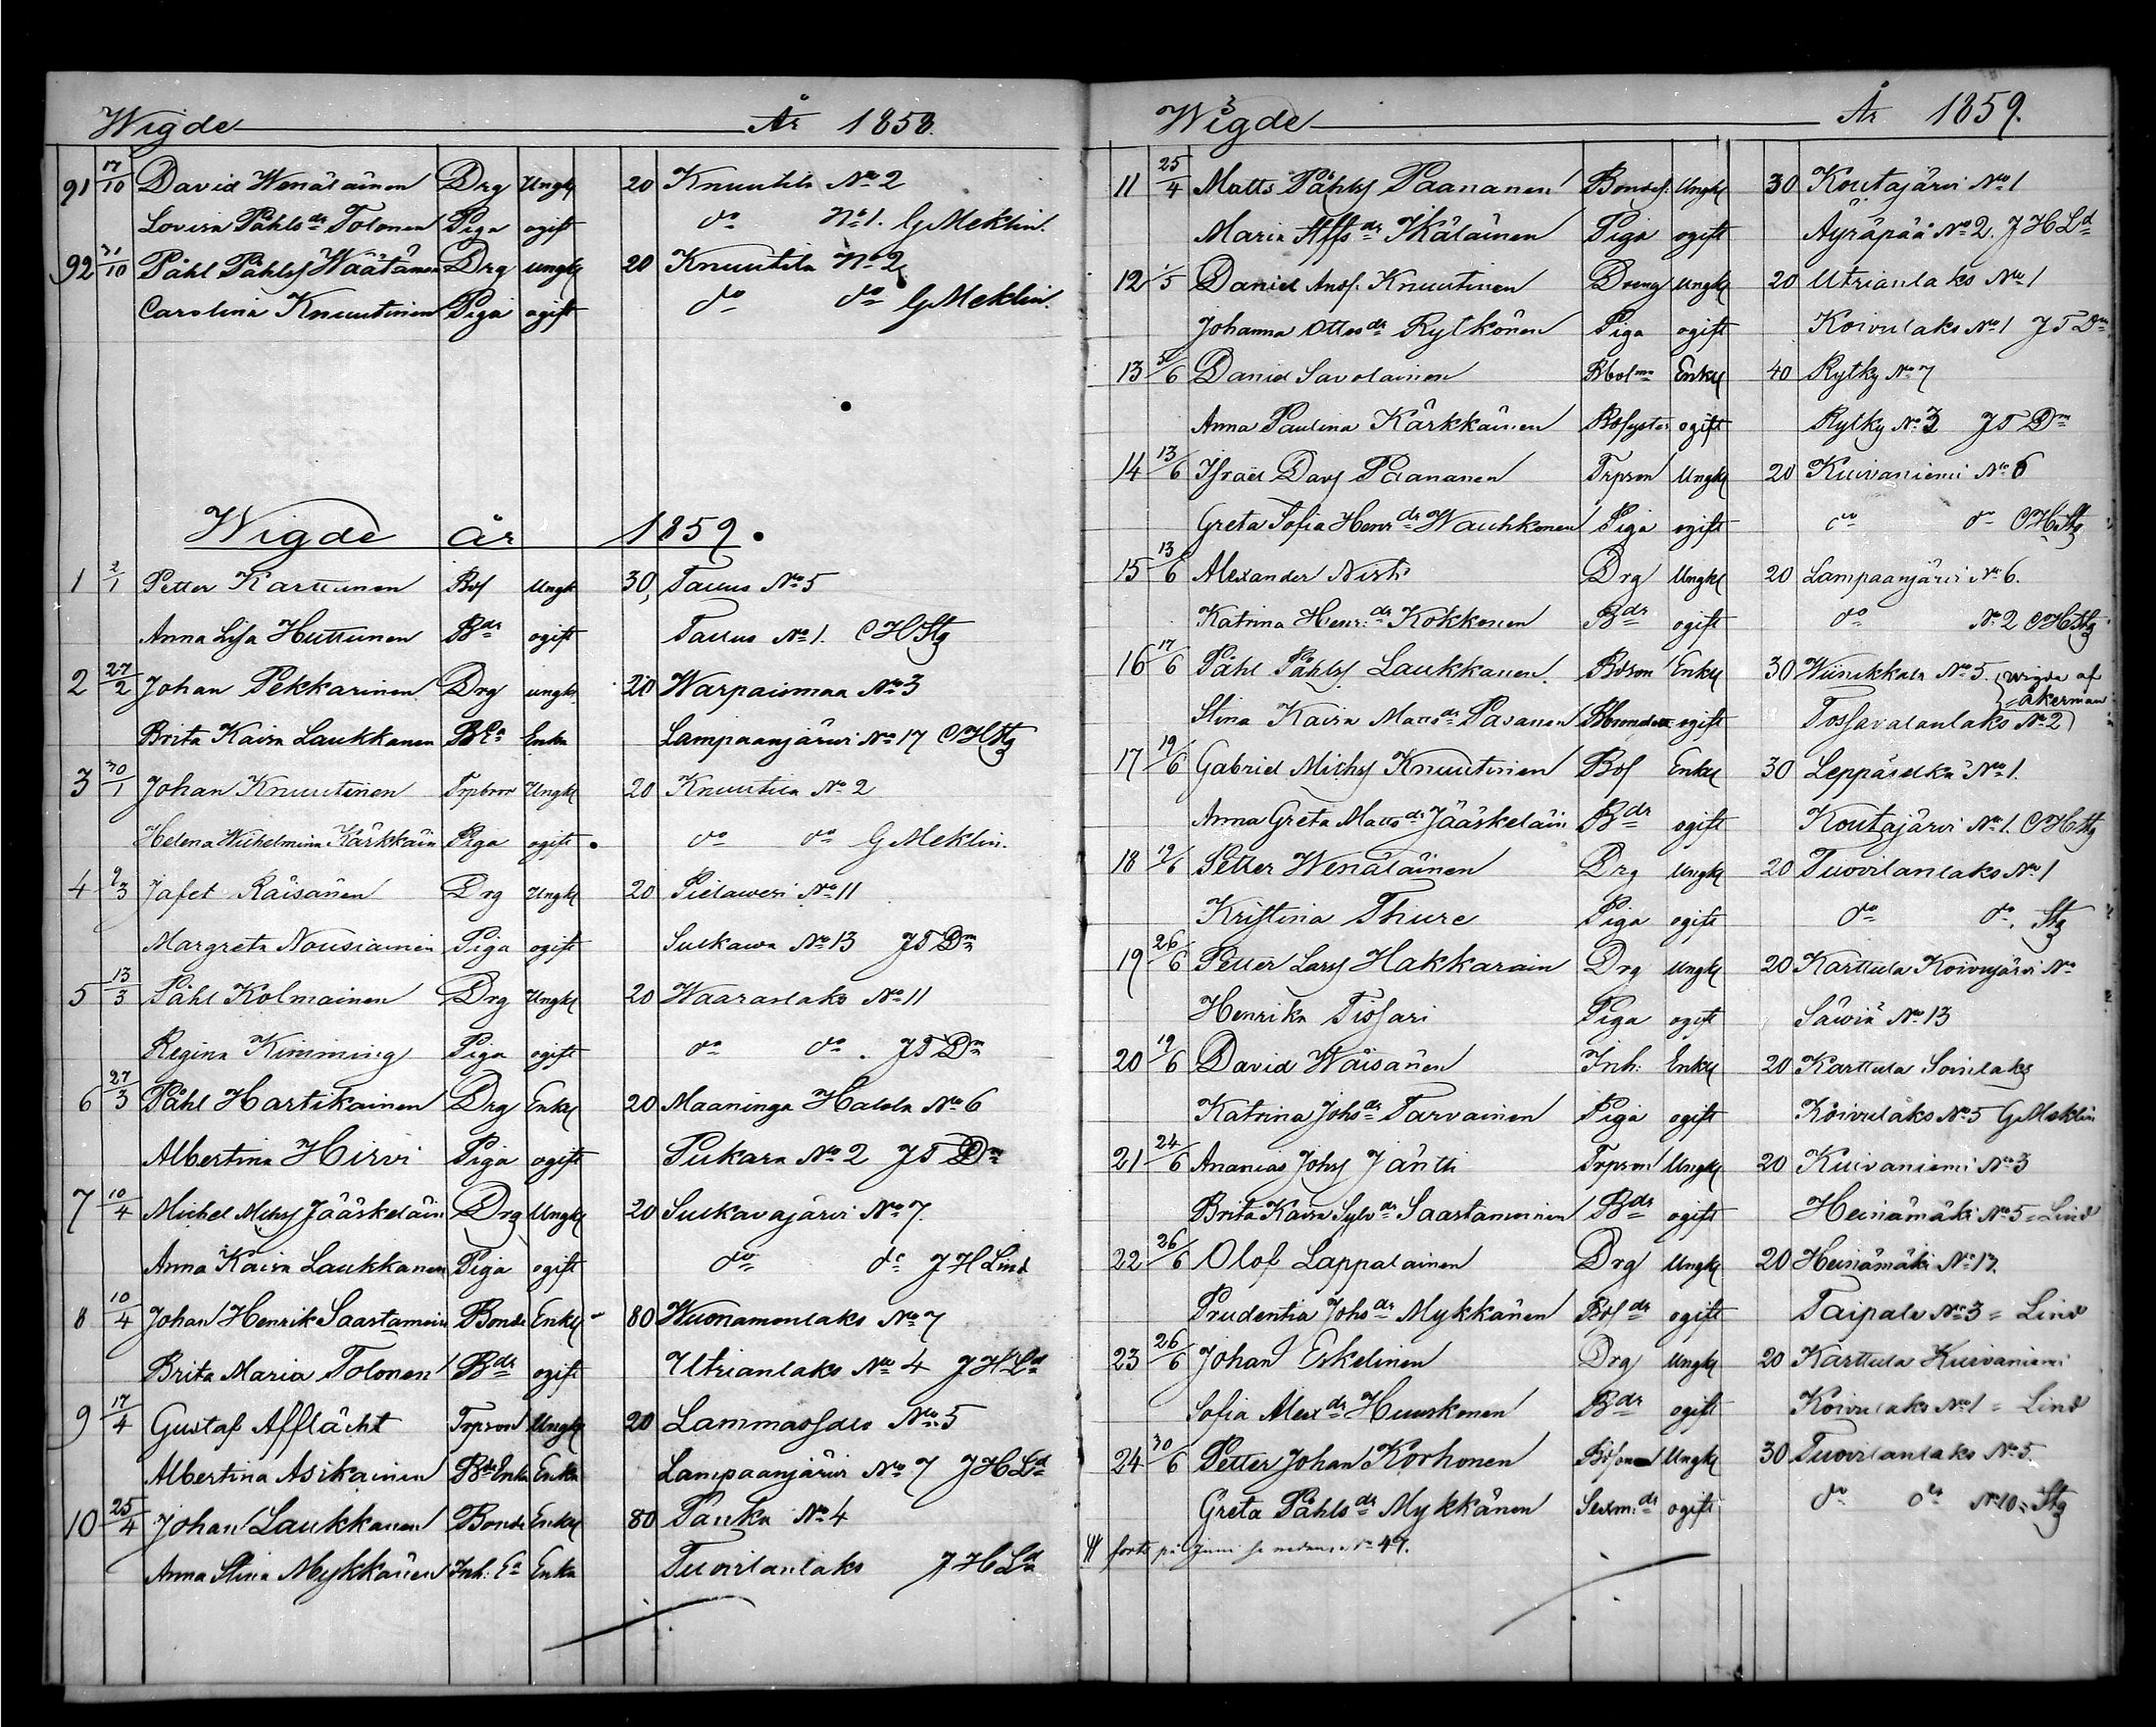 Wigde År 1858.
91 17/10 David Wenäläinen Drg Ungk 20 Knuutila No 2
Lovisa Påhlsdr Tolonen Piga ogift do No 1. G Meklin.
92 31/10 Påhl Påhls Wäätänen Drg ungk 20 Knuutila No 2
Carolina Knuutinen Piga ogift do do G Meklin.
Wigde år 1859.
1 2/1 Petter Karttunen Bds Ungk 30, Tauus No 5
Anna Lisa Huttunen Bdr ogift Tauus No 1. CHStg
2 27/2 Johan Pekkarinen Drg ungk 20 Warpaismaa No 3
Brita Kaisa Laukkanen BEa Enka Lampaanjärwi No 17 CHStg
3 30/1 Johan Knuutinen Trpbror Ungk 20 Knuutila No 2
Helena Wilhelmina Kärkkäin Piga ogift do do G Meklin.
4 9/3 Jafet Räisänen Drg Ungk 20 Pielawesi No 11
Margreta Nousiainen Piga ogift Sulkawa No 13 JTDm
5 13/3 Påhl Kolmainen Drg Ungk 20 Waaraslaks No 11
Regina Kimming Piga ogift do do. JTDm
6 27/3 Påhl Hartikainen Drg Enkl 20 Maaninga Halola No 6
Albertina Hirvi Piga ogift Pukara No 2 JTDm
7 10/4 Michel Michs Jääskeläin Drg Ungk 20 Sulkavajärvi No 7.
Anna Kaisa Laukkanen Piga ogift do do JH Lind
8 10/4 Johan Henrik Saastamoin Bonde Enkl 80 Wuonamonlaks No 7
Brita Maria Tolonen Bdr ogift Utrianlaks No 4 JHLd
9 17/4 Gustaf Afflächt Trpson Ungk 20 Lammassalo No 5
Albertina Asikainen BdsEnka Enka Lampaanjärwi No 7 JHLd
10 25/4 Johan Laukkanen Bonde Enkl 80 Panka No 4
Anna Stina Mykkänen Inh: Ea Enka Tuovilanlaks JHLd
3
Wigde År 1859.
11 25/4 Matts Påhls Paananen Bondes. Ungk 30 Koutajärvi No 1
Maria Stffsdr Ikäläinen Piga ogift Äyräpää No 2. JHLd
12 1/5 Daniel Ands. Knuutinen Dreng Ungk 20 Utrianlaks No 1
Johanna Ottosdr Rytkönen Piga ogift Koivulaks No 1 JTDm
13 5/6 Daniel Savolainen Bbolm Enkl 40 Rytky No 7
Anna Paulina Kärkkäinen Bdsyster ogift Rytky No 3 JTDm
14 13/6 Israel Davs Paananen Trpson Ungk 20 Kuivaniemi No 6
Greta Sofia Henrdr Wauhkonen Piga ogift do do CHStg
15 13/6 Alexander Nisti Drg Ungk 20 Lampaanjärvi No 6.
Katrina Henr:dr Kokkonen Bdr ogift do No 2 CHStg
16 17/6 Påhl Påhls Laukkanen. Bdson Enkl 30 Wiinikkala No 5. wigda af
åkerman
Stina Kaisa Mattsdr Pasanen ogift Tossavalanlaks No 2
17 19/6 Gabriel Michs Knuutinen Bds Enkl 30 Leppäselkä No 1.
Anna Greta Mattsdr Jääskeläin Bdr ogift Koutajärvi No 1. CHStg
18 19/6 Petter Wenäläinen Drg Ungk 20 Tuovilanlaks No 1
Kristina Thure Piga ogift do do. Stg
19 26/6 Petter Lars Hakkarain Drg Ungk 20 Karttula Koivujärvi No
Henrika Tissari Piga ogift Säwiä No 13
20 19/6 David Wäisänen Inh: Enkl 20 Karttula Soinlaks
Katrina Johsdr Tarvainen Piga ogift Koivulaks No 5 G Meklin
21 24/6 Ananias Johs Jäntti Trpson Ungk 20 Kuivaniemi No 3
Brita Kaisa Sylvdr Saastamoinen Bdr ogift Heinämäki No 5 = Lind
22 26/6 Olof Lappalainen Drg Ungk 20 Heinämäki No 13.
Prudentia Johsdr Mykkänen Bdsdr ogift Taipale No 3 = Lind
23 26/6 Johan Eskelinen Drg Ungk 20 Karttula Kuivaniemi
Sofia Alexdr Huuskonen Bdr ogift Koivulaks No 1 = Lind
24 30/6 Petter Johan Korhonen Bdson Ungk 30 Tuovilanlaks No 5.
Greta Påhlsdr Mykkänen Sexm:dr ogift do do No 10 = Stg
forts på Juni se nedan No 47.